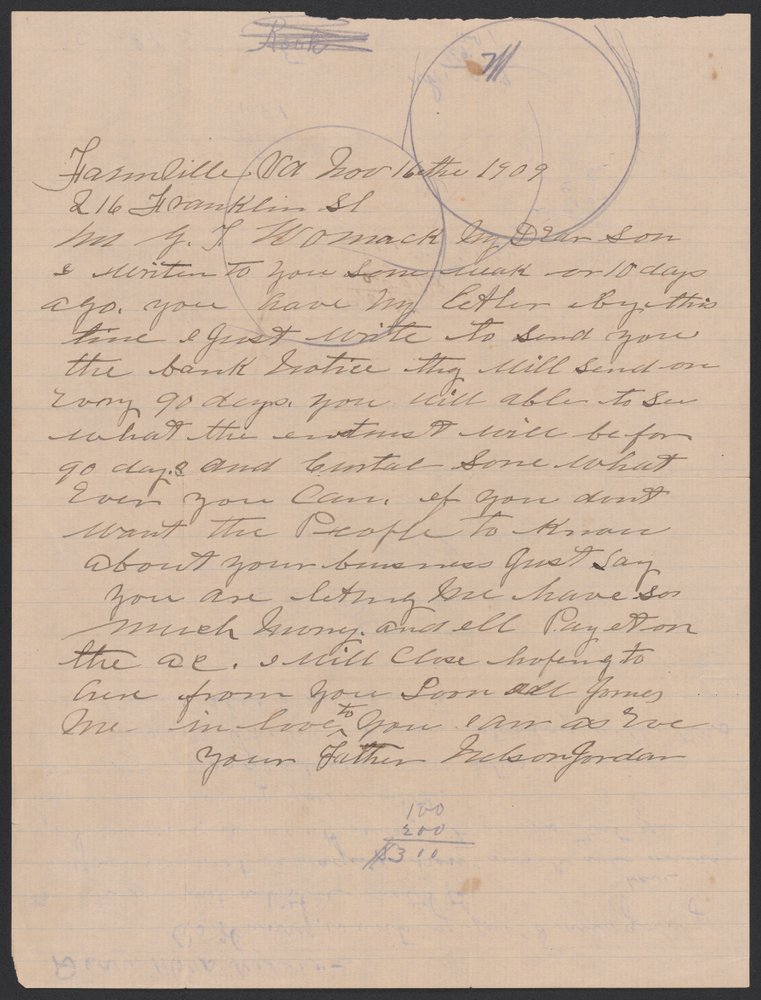 Book
Farmville Va Nov 16the 1909
216 Franklin St
Mr J. T. Womack My Dear son
I writen to you some weak or 10 days
ago. you have My letter by this
time I Just write to send you
the bank Notice they Will send on
Every 90 days. you will able to see
what the entrust will be for
90 days and Curtal Some what
Ever you Can. if you dont
want the People to Know
about your business Just Say
you are leting Me have so
much Mony. and ell Pay et on
the ac. I Will Close hoping to
here from you Soon all Joines
Me in love to you I am as Eve
your Father Nelson Jordan
100
200
$3 00